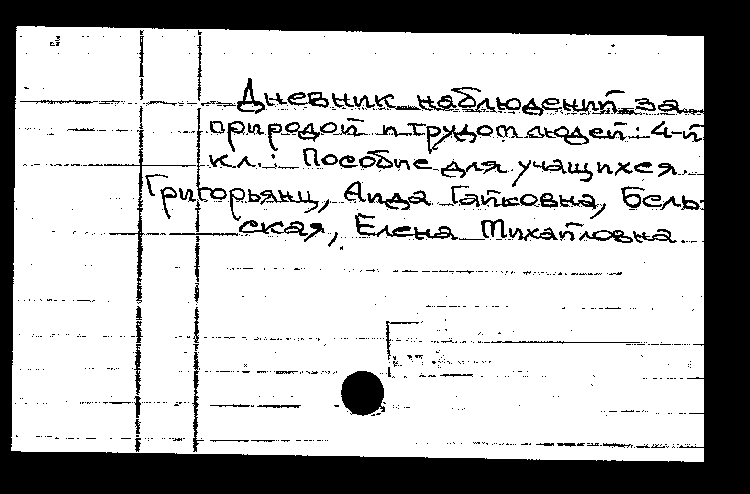 Дневник наблюдений за
природой и трудом людей: 4-й
кл.: Пособие для учащихся.
Григорьянц, Аида Гайковна, Бель-
ская, Елена Михайловна.